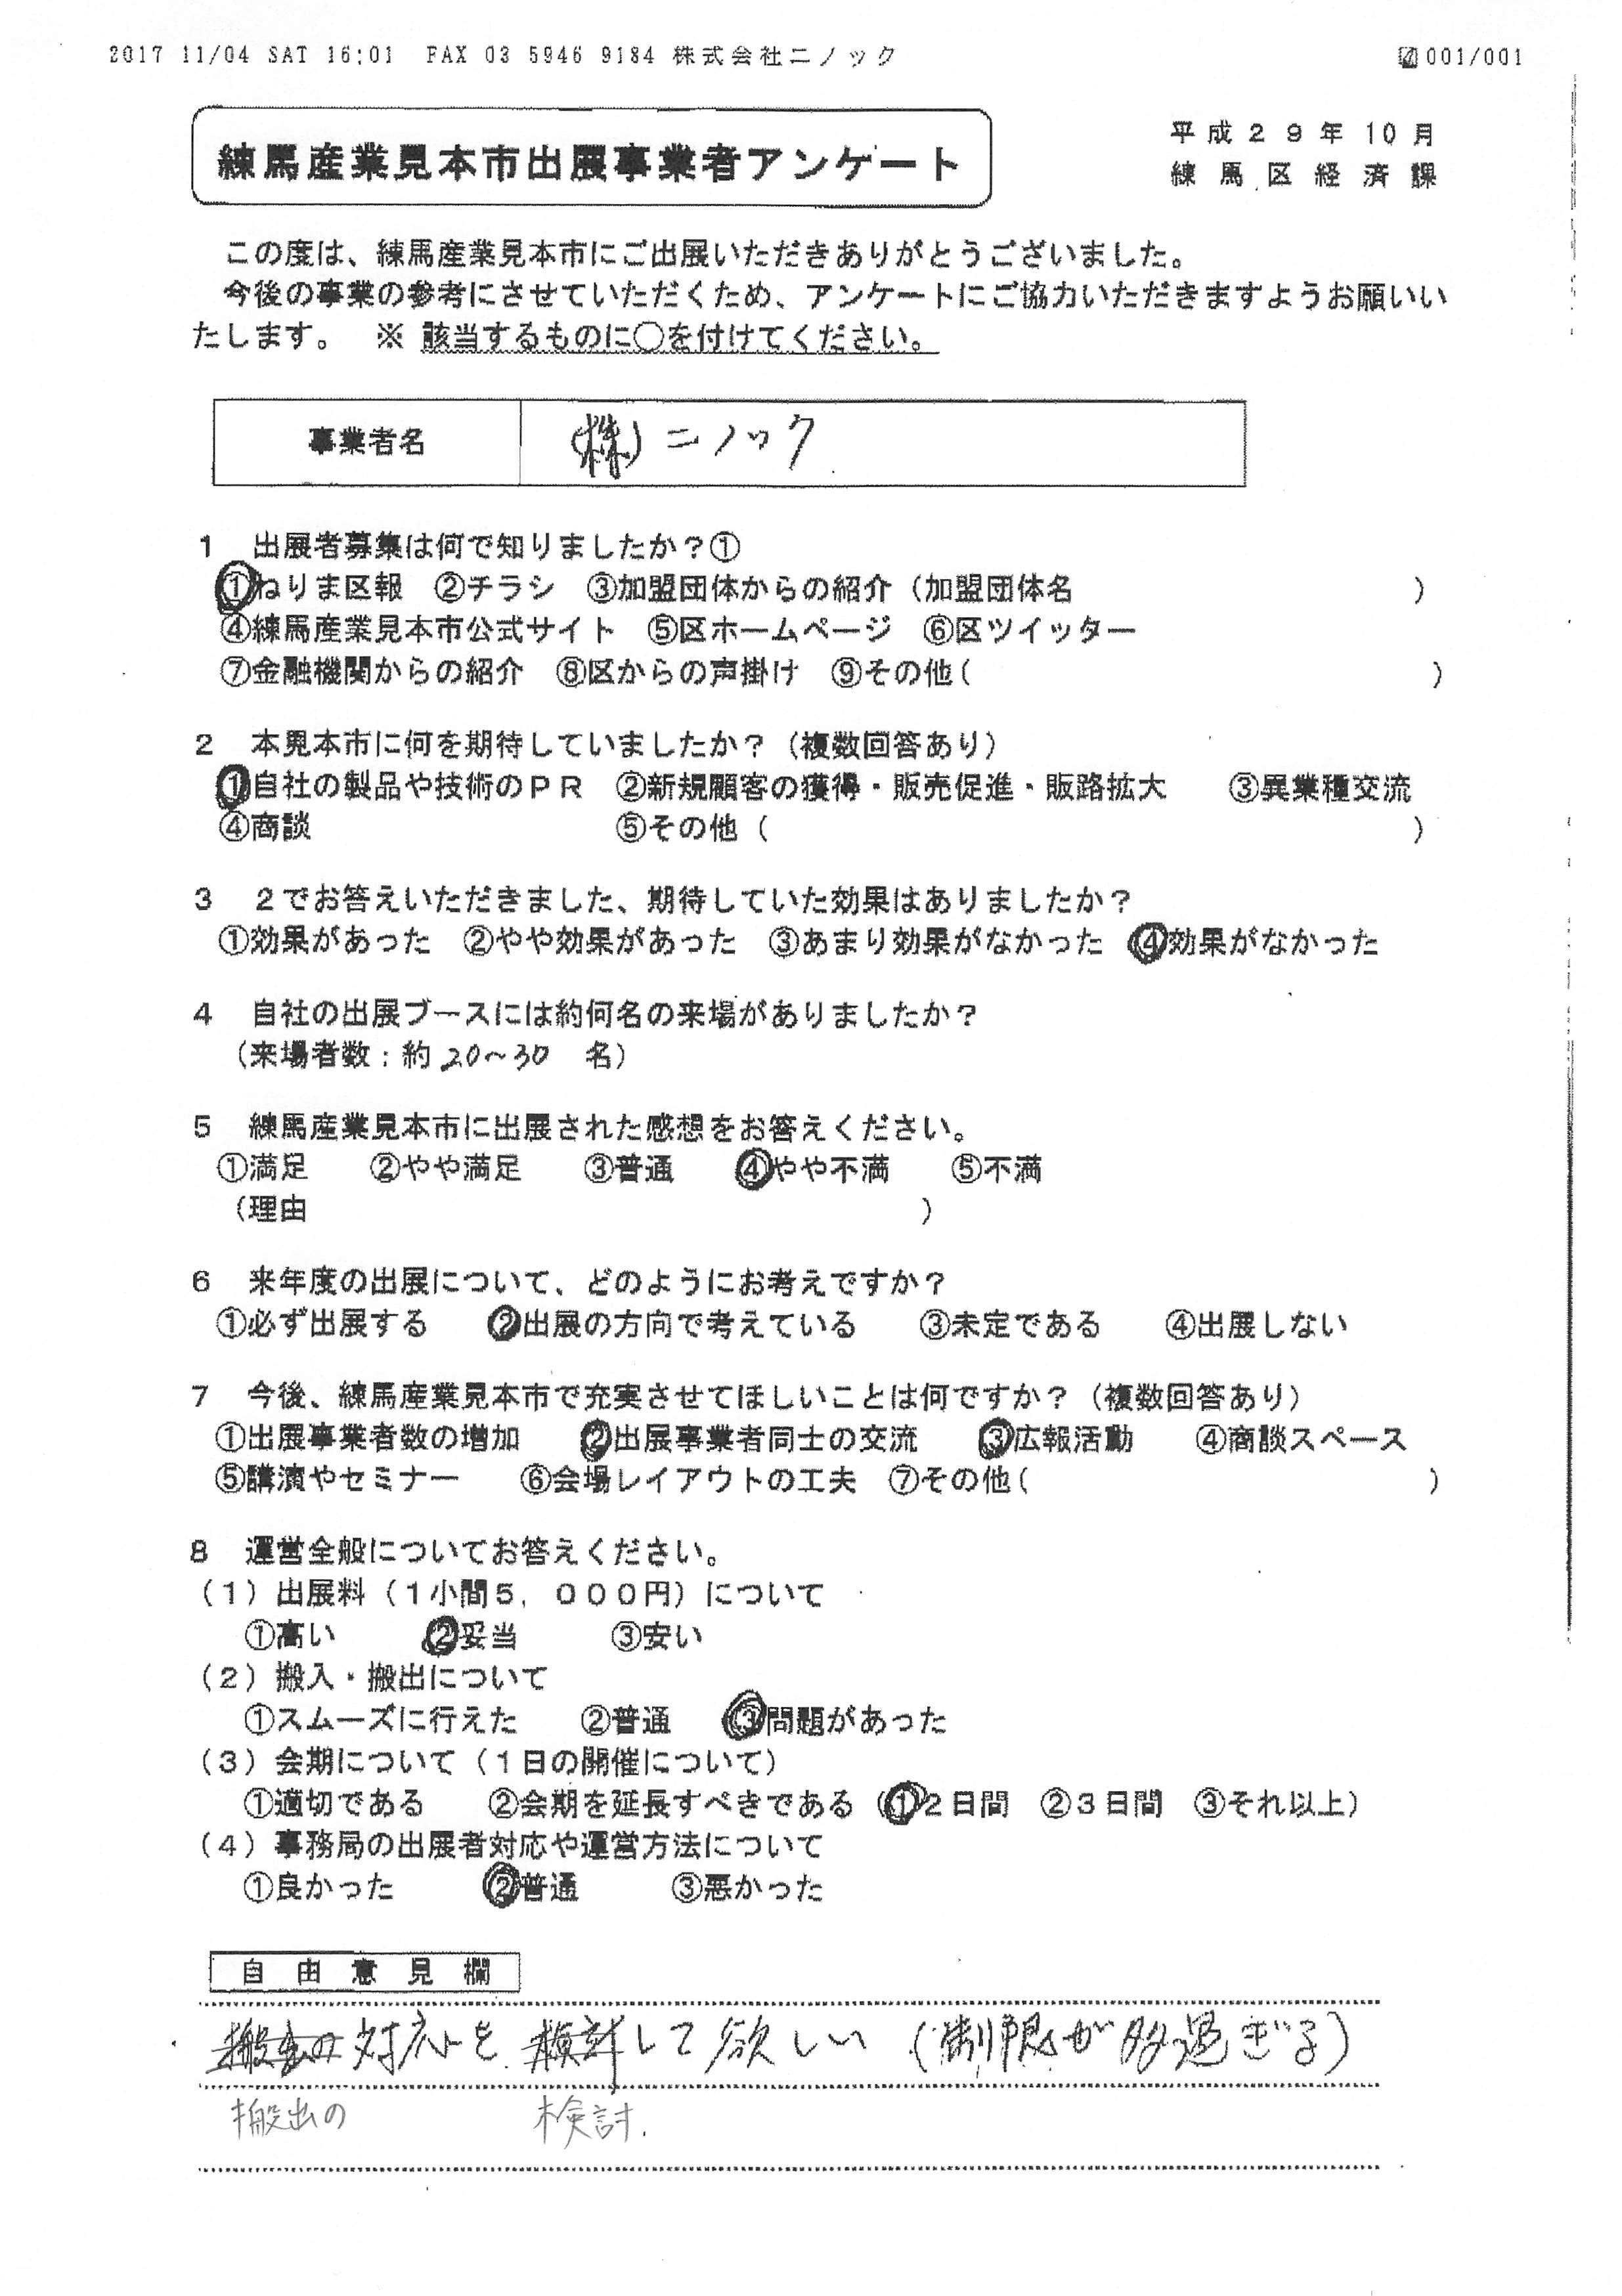 2017 11/04 SAT 16:01 FAX 03 5946 9184 株式会社ニノック 001/001
練馬産業見本市出展事業者アンケート
平成２９年１０月
練馬区経済課
この度は、練馬産業見本市にご出展いただきありがとうございました。
今後の事業の参考にさせていただくため、アンケートにご協力いただきますようお願いい
たします。　※　該当するものに○を付けてください。
事業者名　(株)ニノック
１　出展者募集は何で知りましたか？①
①ねりま区報　②チラシ　③加盟団体からの紹介（加盟団体名　）
④練馬産業見本市公式サイト　⑤区ホームページ　⑥区ツイッター
⑦金融機関からの紹介　⑧区からの声掛け　⑨その他(　)
２　本見本市に何を期待していましたか？（複数回答あり）
①自社の製品や技術のＰＲ　②新規顧客の獲得・販売促進・販路拡大　③異業種交流
④商談　⑤その他（　）
３　２でお答えいただきました、期待していた効果はありましたか？
①効果があった　②やや効果があった　③あまり効果がなかった　④効果がなかった
４　自社の出展ブースには約何名の来場がありましたか？
（来場者数：約 20～30 名）
５　練馬産業見本市に出展された感想をお答えください。
①満足　②やや満足　③普通　④やや不満　⑤不満
（理由　）
６　来年度の出展について、どのようにお考えですか？
①必ず出展する　②出展の方向で考えている　③未定である　④出展しない
７　今後、練馬産業見本市で充実させてほしいことは何ですか？（複数回答あり）
①出展事業者数の増加　②出展事業者同士の交流　③広報活動　④商談スペース
⑤講演やセミナー　⑥会場レイアウトの工夫　⑦その他(　)
８　運営全般についてお答えください。
（１）出展料（１小間５，０００円）について
①高い　②妥当　③安い
（２）搬入・搬出について
①スムーズに行えた　②普通　③問題があった
（３）会期について（１日の開催について）
①適切である　②会期を延長すべきである（①２日間　②３日間　③それ以上）
（４）事務局の出展者対応や運営方法について
①良かった　②普通　③悪かった
自由意見欄
搬出の対応を検討して欲しい（制限が多過ぎる）
搬出の　検討.